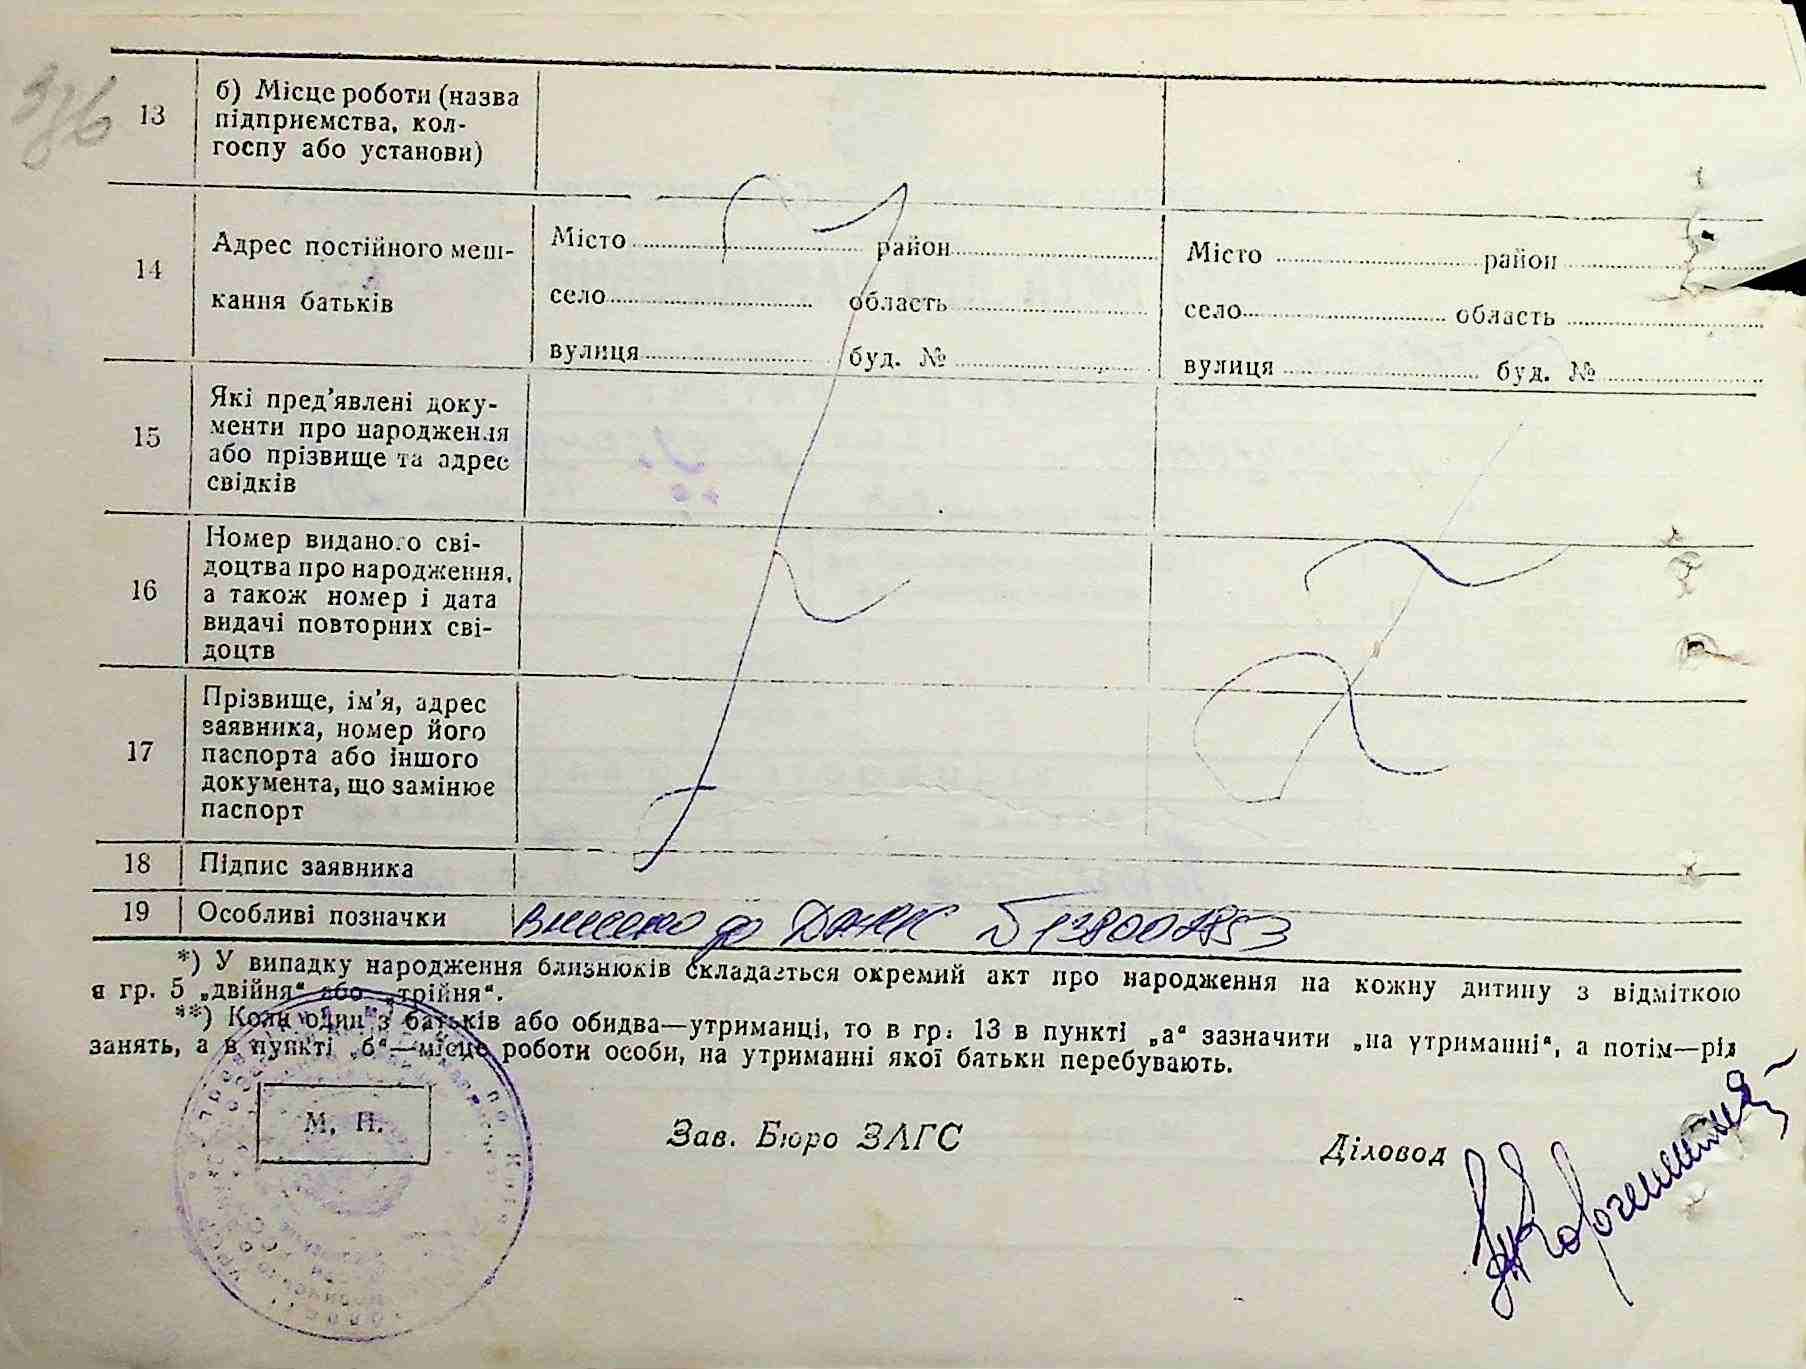 13
б) Місце роботи (назва
підприємства, кол-
госпу або установи)
14
Адрес постійного меш-
кання батьків
Місто район
село область
вулиця буд. №
Місто район
село область
вулиця буд. №
15
Які пред’явлені доку-
менти про народження
або прізвище та адрес
свідків
16
Номер виданого сві-
доцтва про народження,
а також номер і дата
видачі повторних сві-
доцтв
17
Прізвище, ім’я, адрес
заявника, номер його
паспорта або іншого
документа, що замінює
паспорт
18 Підпис заявника
19 Особливі позначки
Внесено до
*) У випадку народження близнюків складається окремий акт про народження на кожну дитину з відміткою
в гр. 5 „двійня“ або „трійня“.
**) Коли один з батьків або обидва—утриманці, то в гр. 13 в пункті „а“ зазначити „на утриманні“, а потім—рід
занять, а в пункті „б“—місце роботи особи, на утриманні якої батьки перебувають.
М. П.
Зав. Бюро ЗАГС Діловод